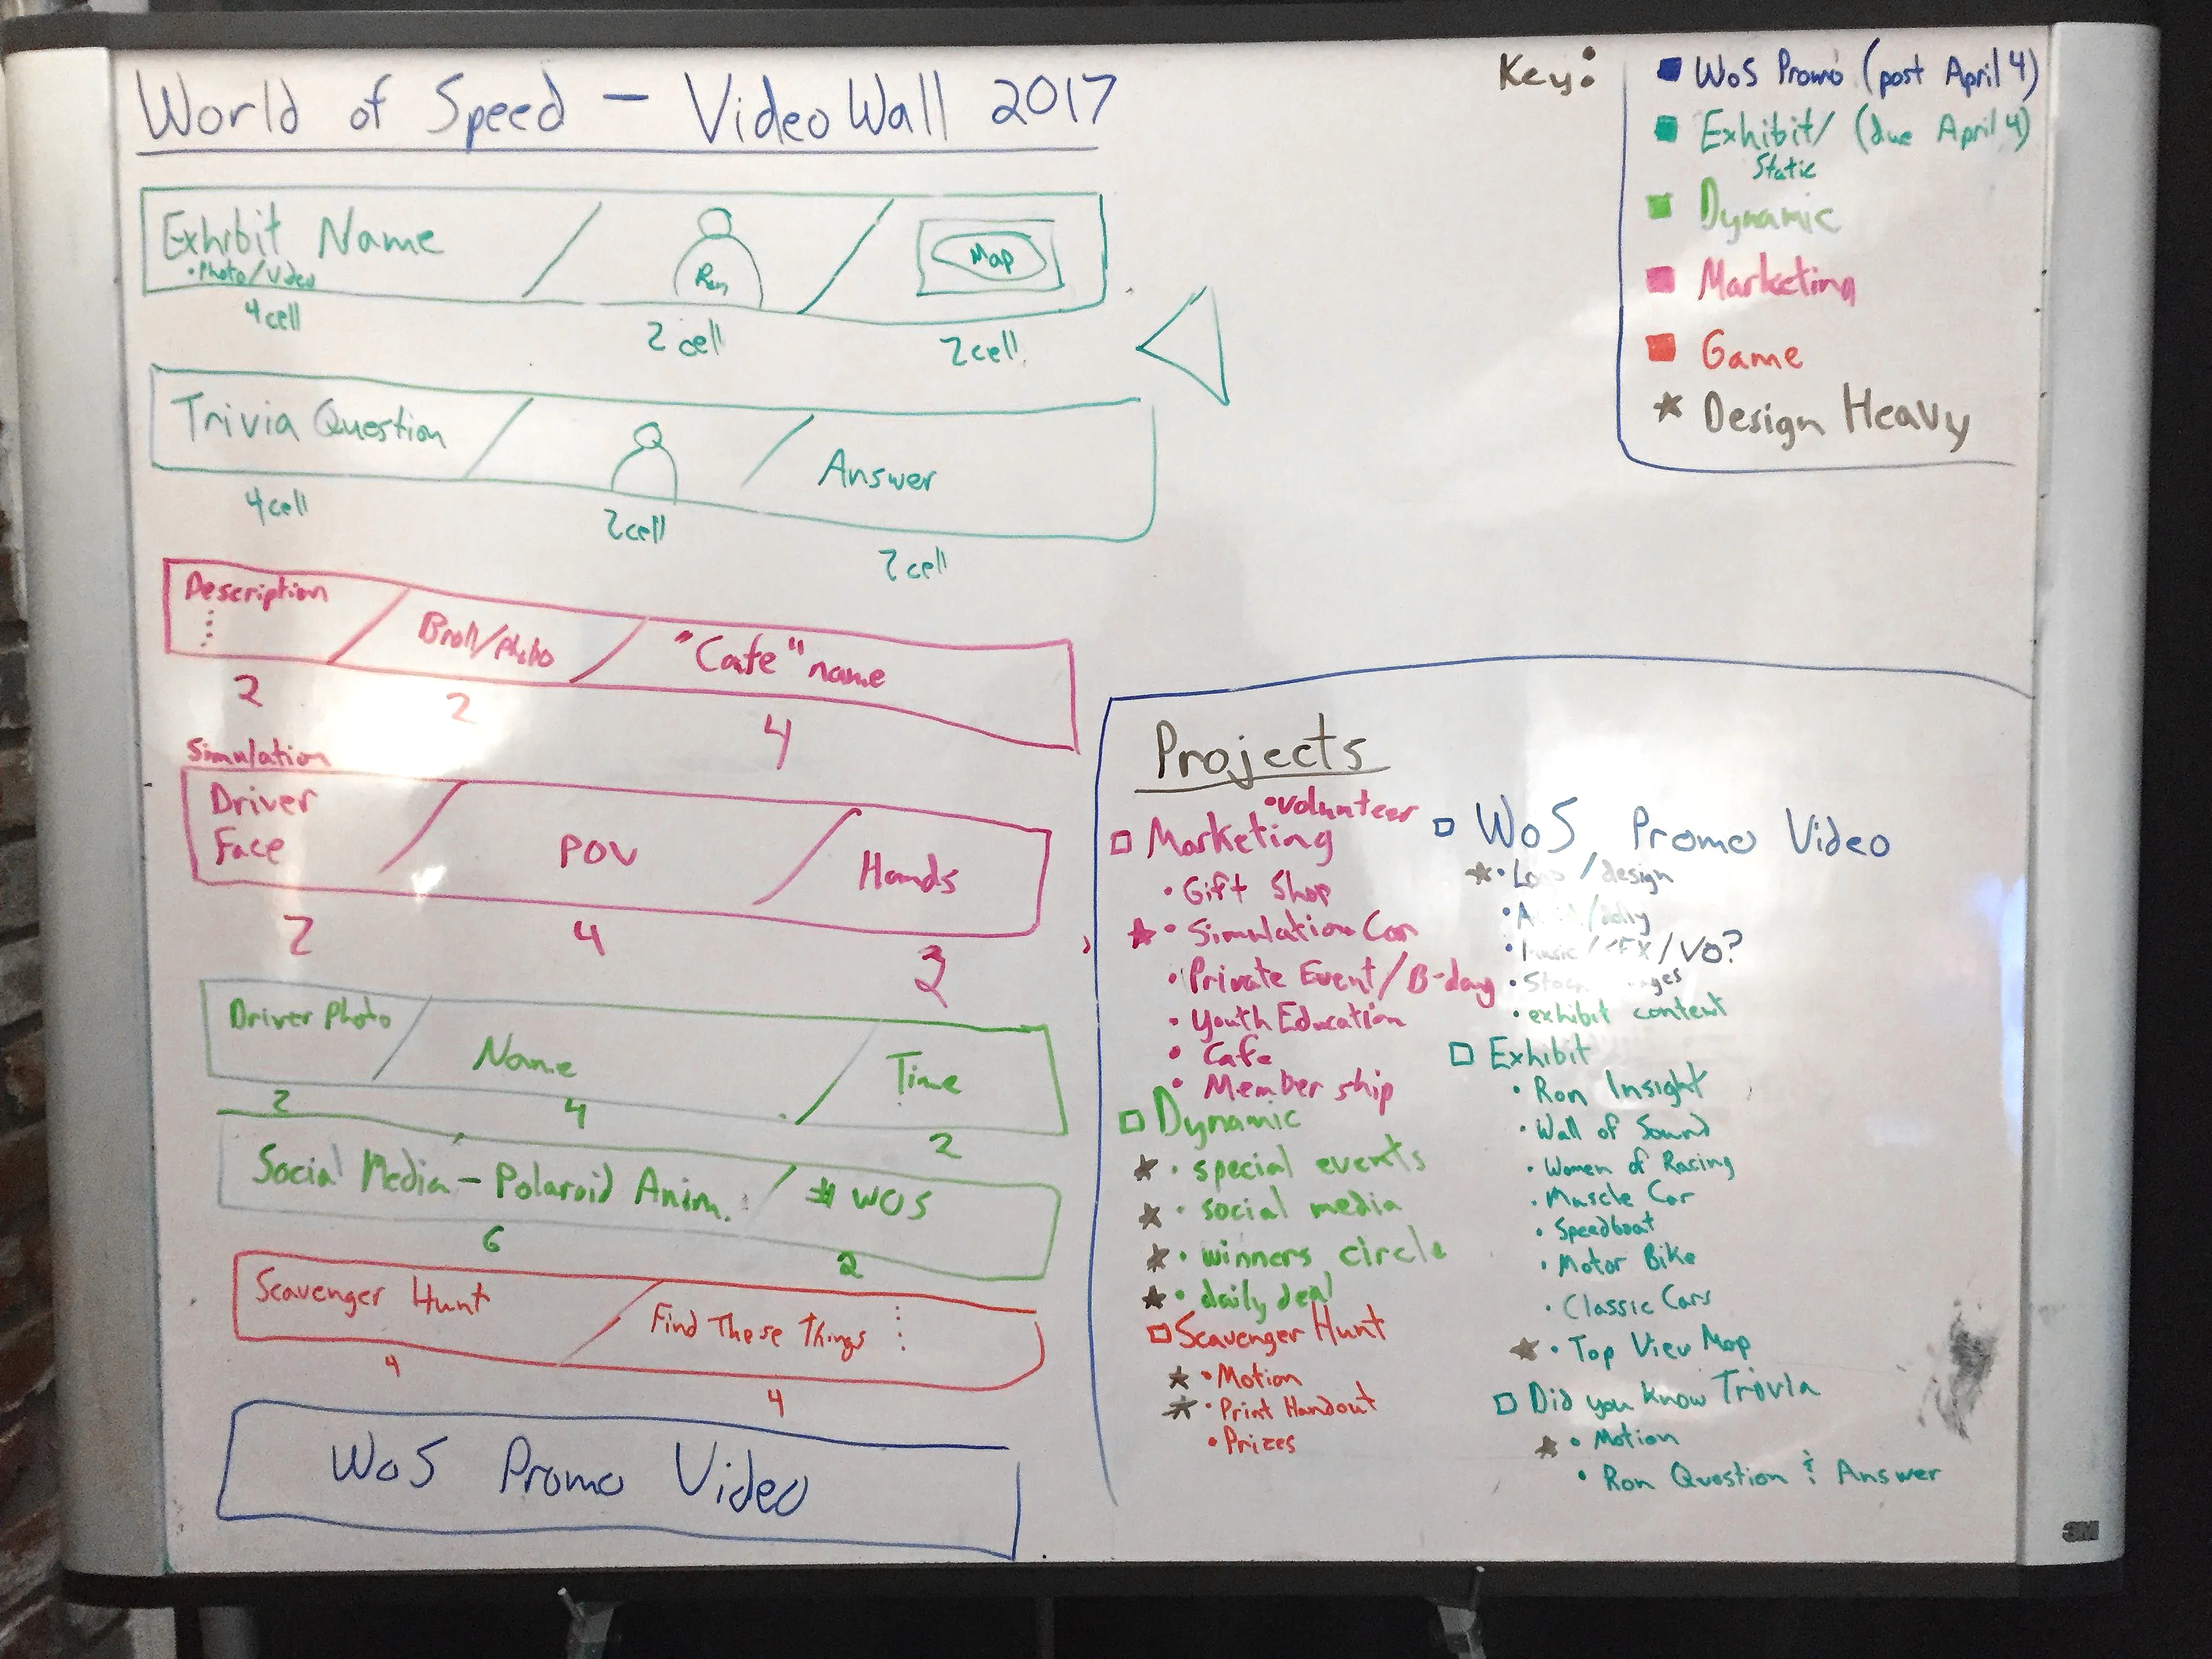 World of Speed — Video Wall 2017
Exhibit Name
• Photo/Video
Ron
Map
4 cell
2 cell
2 cell
Trivia Question
Answer
4 cell
2 cell
2 cell
Description
Broll/Photo
"Cafe" name
2
2
4
Simulation
Driver
Face
POV
Hands
2
4
2
Driver Photo
Name
Time
2
4
2
Social Media - Polaroid Anim.
# WOS
6
2
Scavenger Hunt
Find These Things
4
4
WoS Promo Video
Key:
WoS Promo (post April 4)
Exhibit/ (due April 4)
Static
Dynamic
Marketing
Game
★ Design Heavy
Projects
• volunteer
□ Marketing
• Gift Shop
★ • Simulation Car
• Private Event/B-day
• Youth Education
• Cafe
• Member ship
□ Dynamic
★ • special events
★ • social media
★ • winners circle
★ • daily deal
□ Scavenger Hunt
★ • Motion
★ • Print Handout
• Prizes
□ WoS Promo Video
★ • /design
• /dolly
• /VO?
• exhibit content
□ Exhibit
• Ron Insight
• Wall of Sound
• Women of Racing
• Muscle Car
• Speedboat
• Motor Bike
• Classic Cars
★ • Top View Map
□ Did you know Trivia
★ • Motion
• Ron Question & Answer
3M